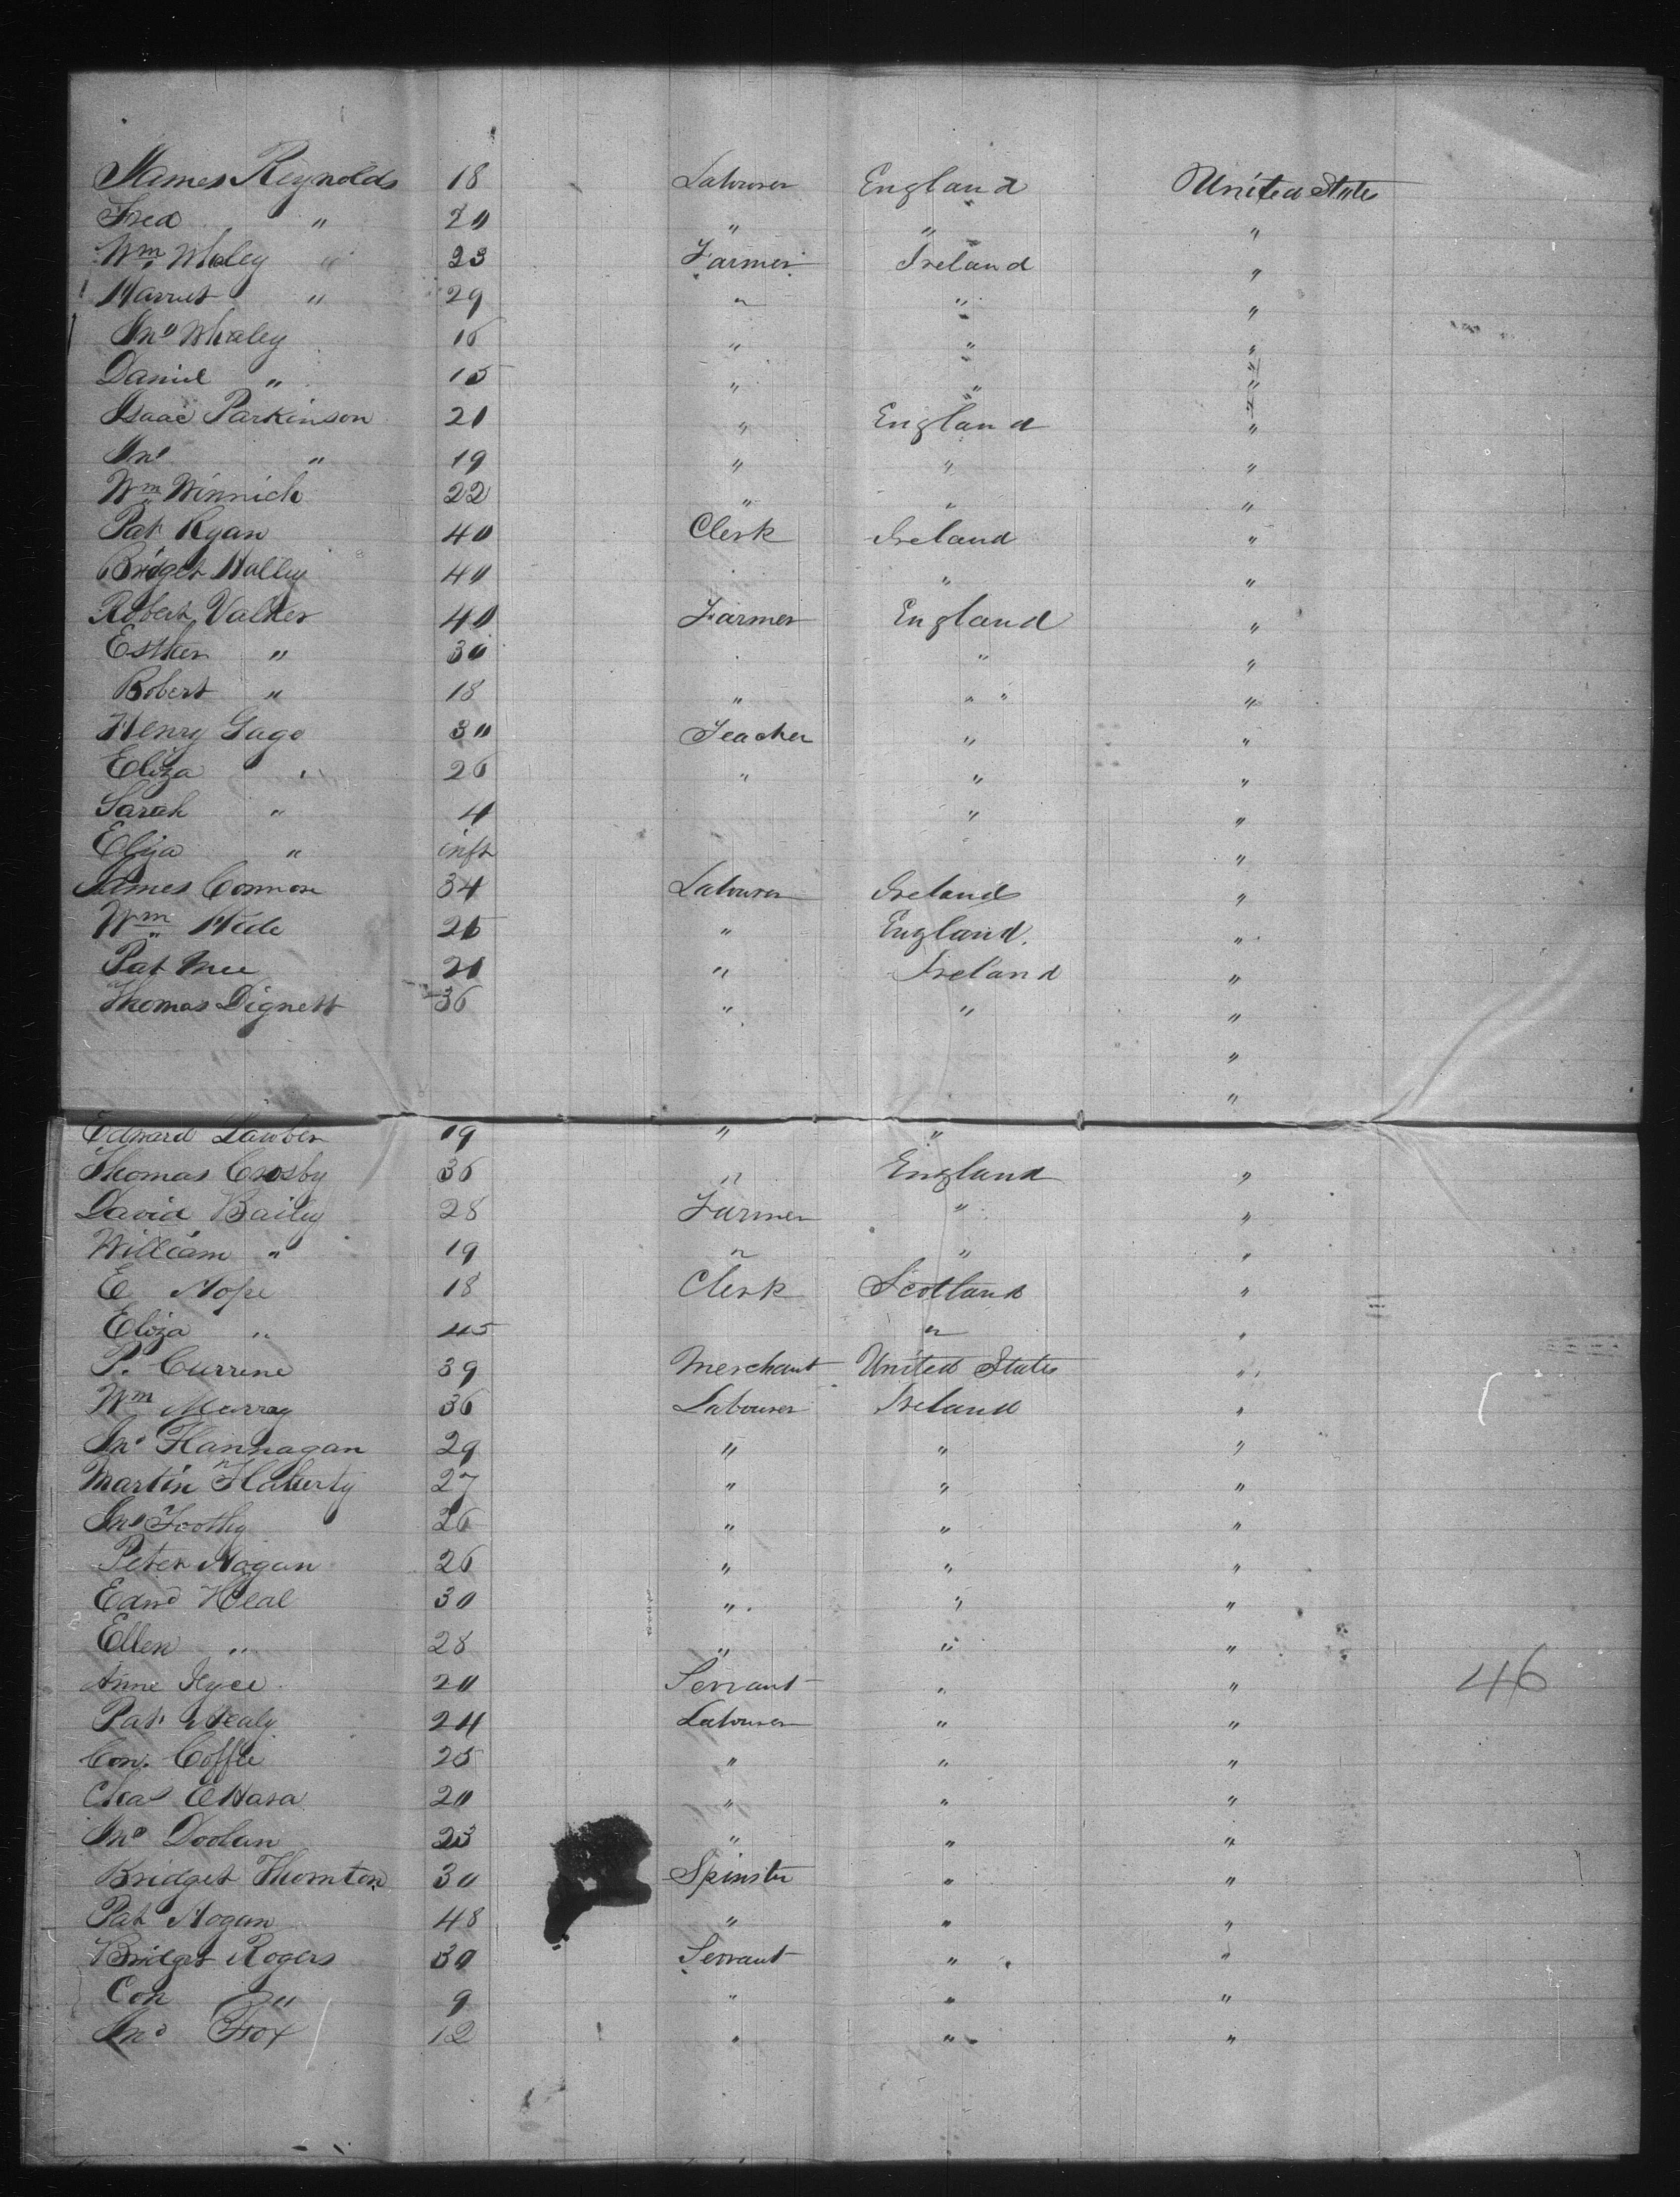 James Reynolds 18 Labourer England United States
Fred " 20 " " "
Wm Whaley " 23 Farmer Ireland "
Harriet " 29 " " "
Jno Whaley 16 " " "
Daniel " 15 " " "
Isaac Parkinson 21 " England "
Jno " 19 " " "
Wm Winnich 22 " " "
Pat Ryan 40 Clerk Ireland "
Bridget Halley 40 " "
Robert Valker 40 Farmer England "
Esther " 30 " "
Robert " 18 " " "
Henry Gage 30 Teacher " "
Eliza " 26 " " "
Sarah " 4 " "
Eliza " inft "
James Connor 34 Labourer Ireland "
Wm Hide 25 " England "
Pat Mee 21 " Ireland "
Thomas Dignett 36 " " "
"
"
Edward Lawber 19 " "
Thomas Crosby 36 " England "
David Bailey 28 Farmer " "
William " 19 " " "
E Hope 18 Clerk Scotland "
Eliza " 45 " "
P. Currene 39 Merchant United States "
Wm Murray 36 Labourer Ireland "
Jno Flannagan 29 " " "
Martin Flaherty 27 " " "
Jno 26 " " "
Peter Hogan 26 " " "
Edwd Heal 30 " " "
Ellen " 28 " " "
Anne 20 Servant " " 46
Pat Healy 24 Labourer " "
Con. Coffee 25 " " "
Chas OHara 20 " " "
Jno Doolan 23 " " "
Bridget Thornton 30 Spinster " "
Pat Hogan 48 " " "
Bridget Rogers 30 Servant " "
Con " 9 " " "
Jno Fox 12 " " "